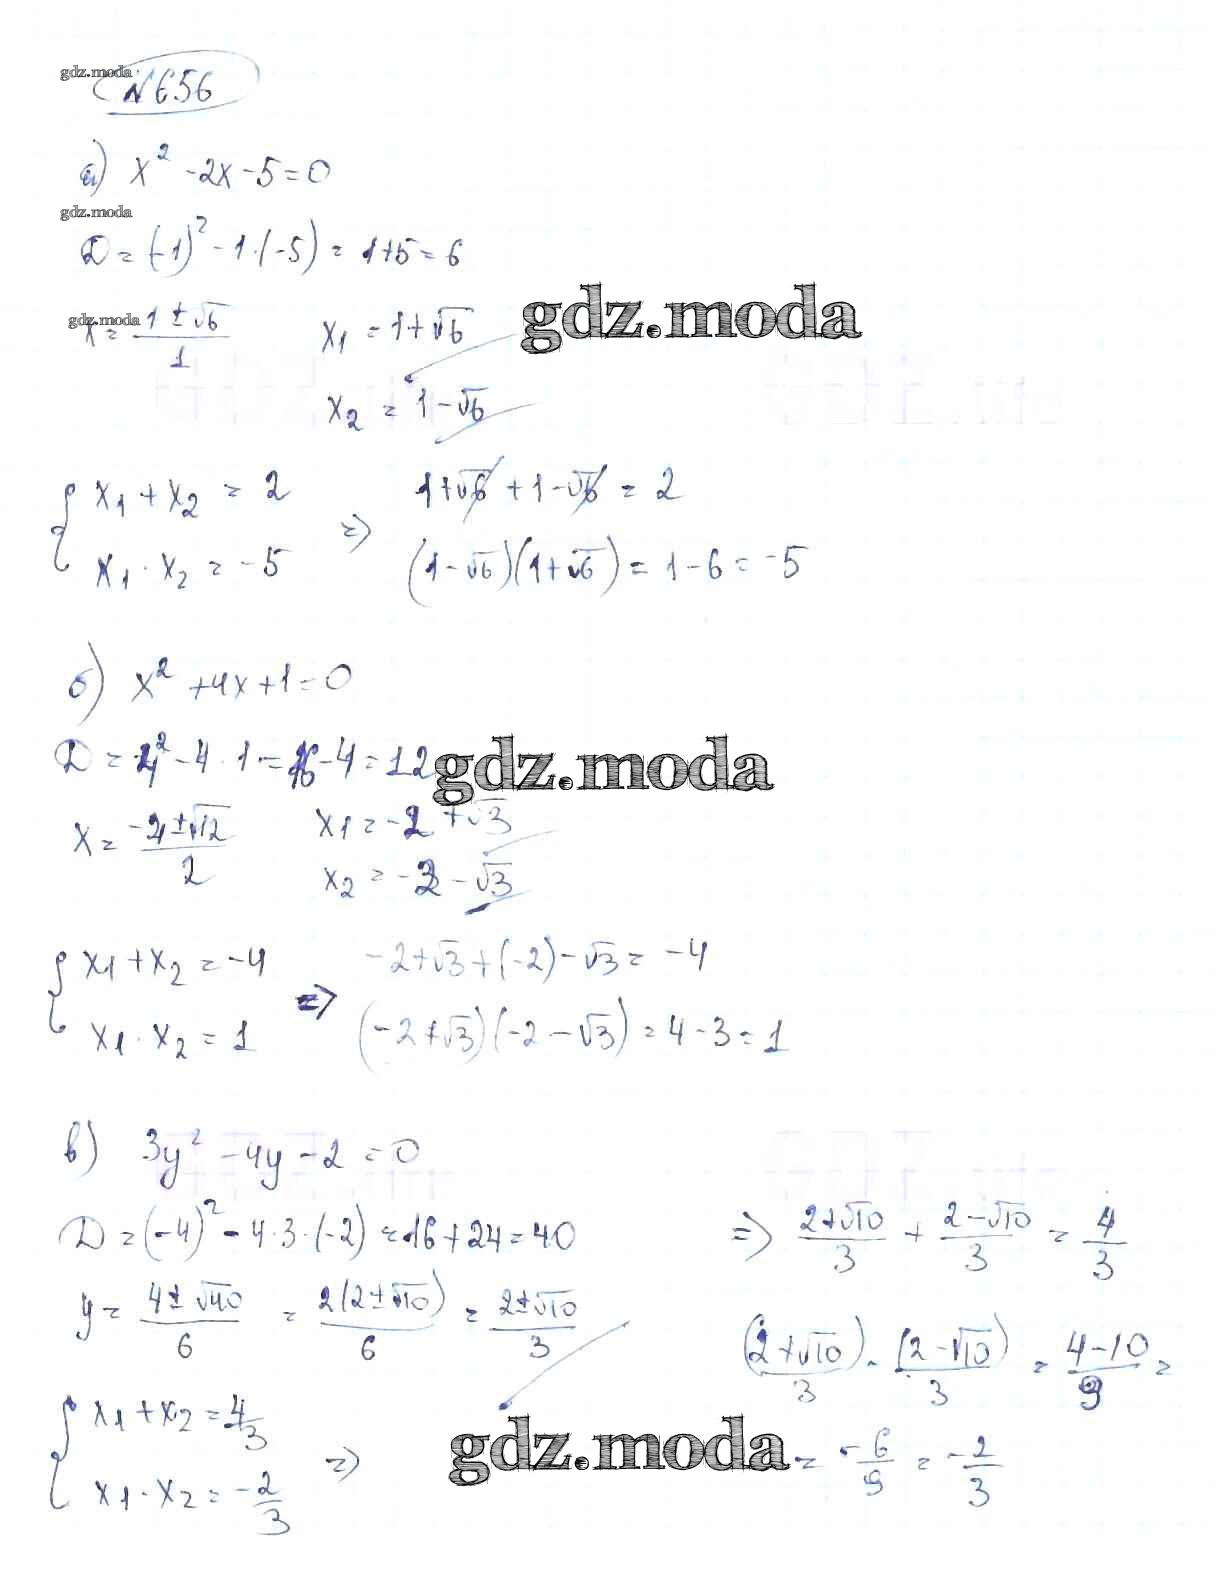 gdz.moda
№656
а) x² - 2x - 5 = 0
gdz.moda
D = (-1)² - 1·(-5) = 1+5 = 6
gdz.moda
x = (1 ± √6)/1   x₁ = 1+√6
gdz.moda
x₂ = 1-√6
{ x₁ + x₂ = 2   =>   1+√6 + 1-√6 = 2
x₁ · x₂ = -5   (1-√6)(1+√6) = 1-6 = -5
б) x² + 4x + 1 = 0
D = 4² - 4·1 = 16-4 = 12
gdz.moda
x = (-4±√12)/2   x₁ = -2+√3
x₂ = -2-√3
{ x₁ + x₂ = -4   =>   -2+√3+(-2)-√3 = -4
x₁ · x₂ = 1   (-2+√3)(-2-√3) = 4-3 = 1
в) 3y² - 4y - 2 = 0
D = (-4)² - 4·3·(-2) = 16+24 = 40
y = (4±√40)/6 = 2(2±√10)/6 = (2±√10)/3
{ x₁ + x₂ = 4/3
x₁ · x₂ = -2/3   =>
=> (2+√10)/3 + (2-√10)/3 = 4/3
(2+√10)/3 · (2-√10)/3 = (4-10)/9 =
gdz.moda
= -6/9 = -2/3